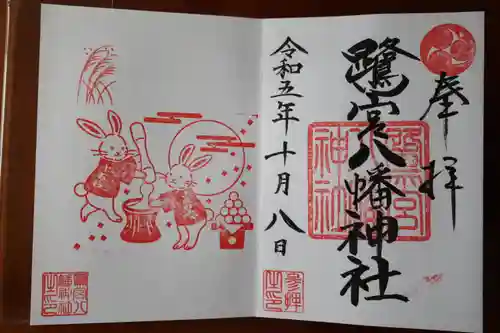 奉拝
鷺宮八幡神社
令和五年十月八日
鷺宮八幡神社
参拝